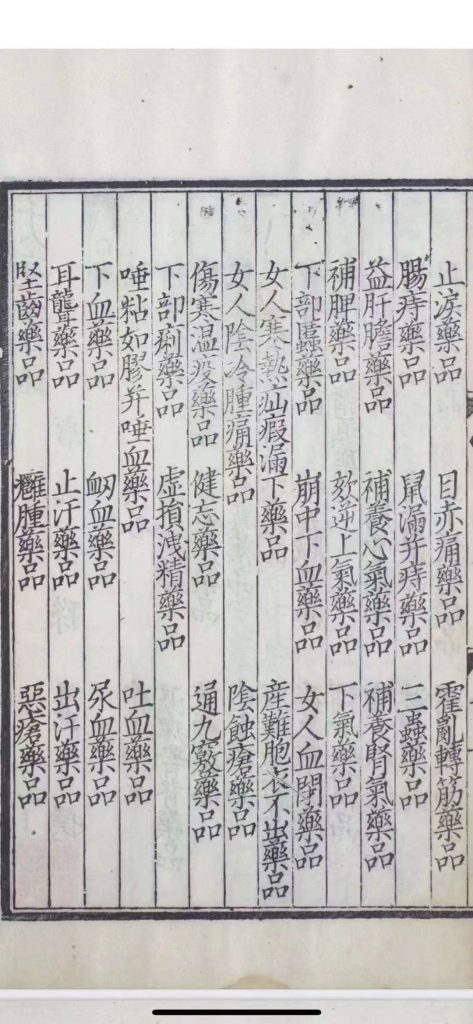 止淚藥品 目赤痛藥品 霍亂轉筋藥品
腸痔藥品 鼠漏并痔藥品 三蟲藥品
益肝膽藥品 補養心氣藥品 補養腎氣藥品
補脾藥品 欬逆上氣藥品 下氣藥品
下部䘌藥品 崩中下血藥品 女人血閉藥品
女人寒熱疝瘕漏下藥品 産難胞衣不出藥品
女人陰冷腫痛藥品 陰蝕瘡藥品
傷寒温疫藥品 健忘藥品 通九竅藥品
下部痢藥品 虛損洩精藥品
唾粘如膠并唾血藥品 吐血藥品
下血藥品 衂血藥品 尿血藥品
耳聾藥品 止汗藥品 出汗藥品
堅齒藥品 癰腫藥品 惡瘡藥品